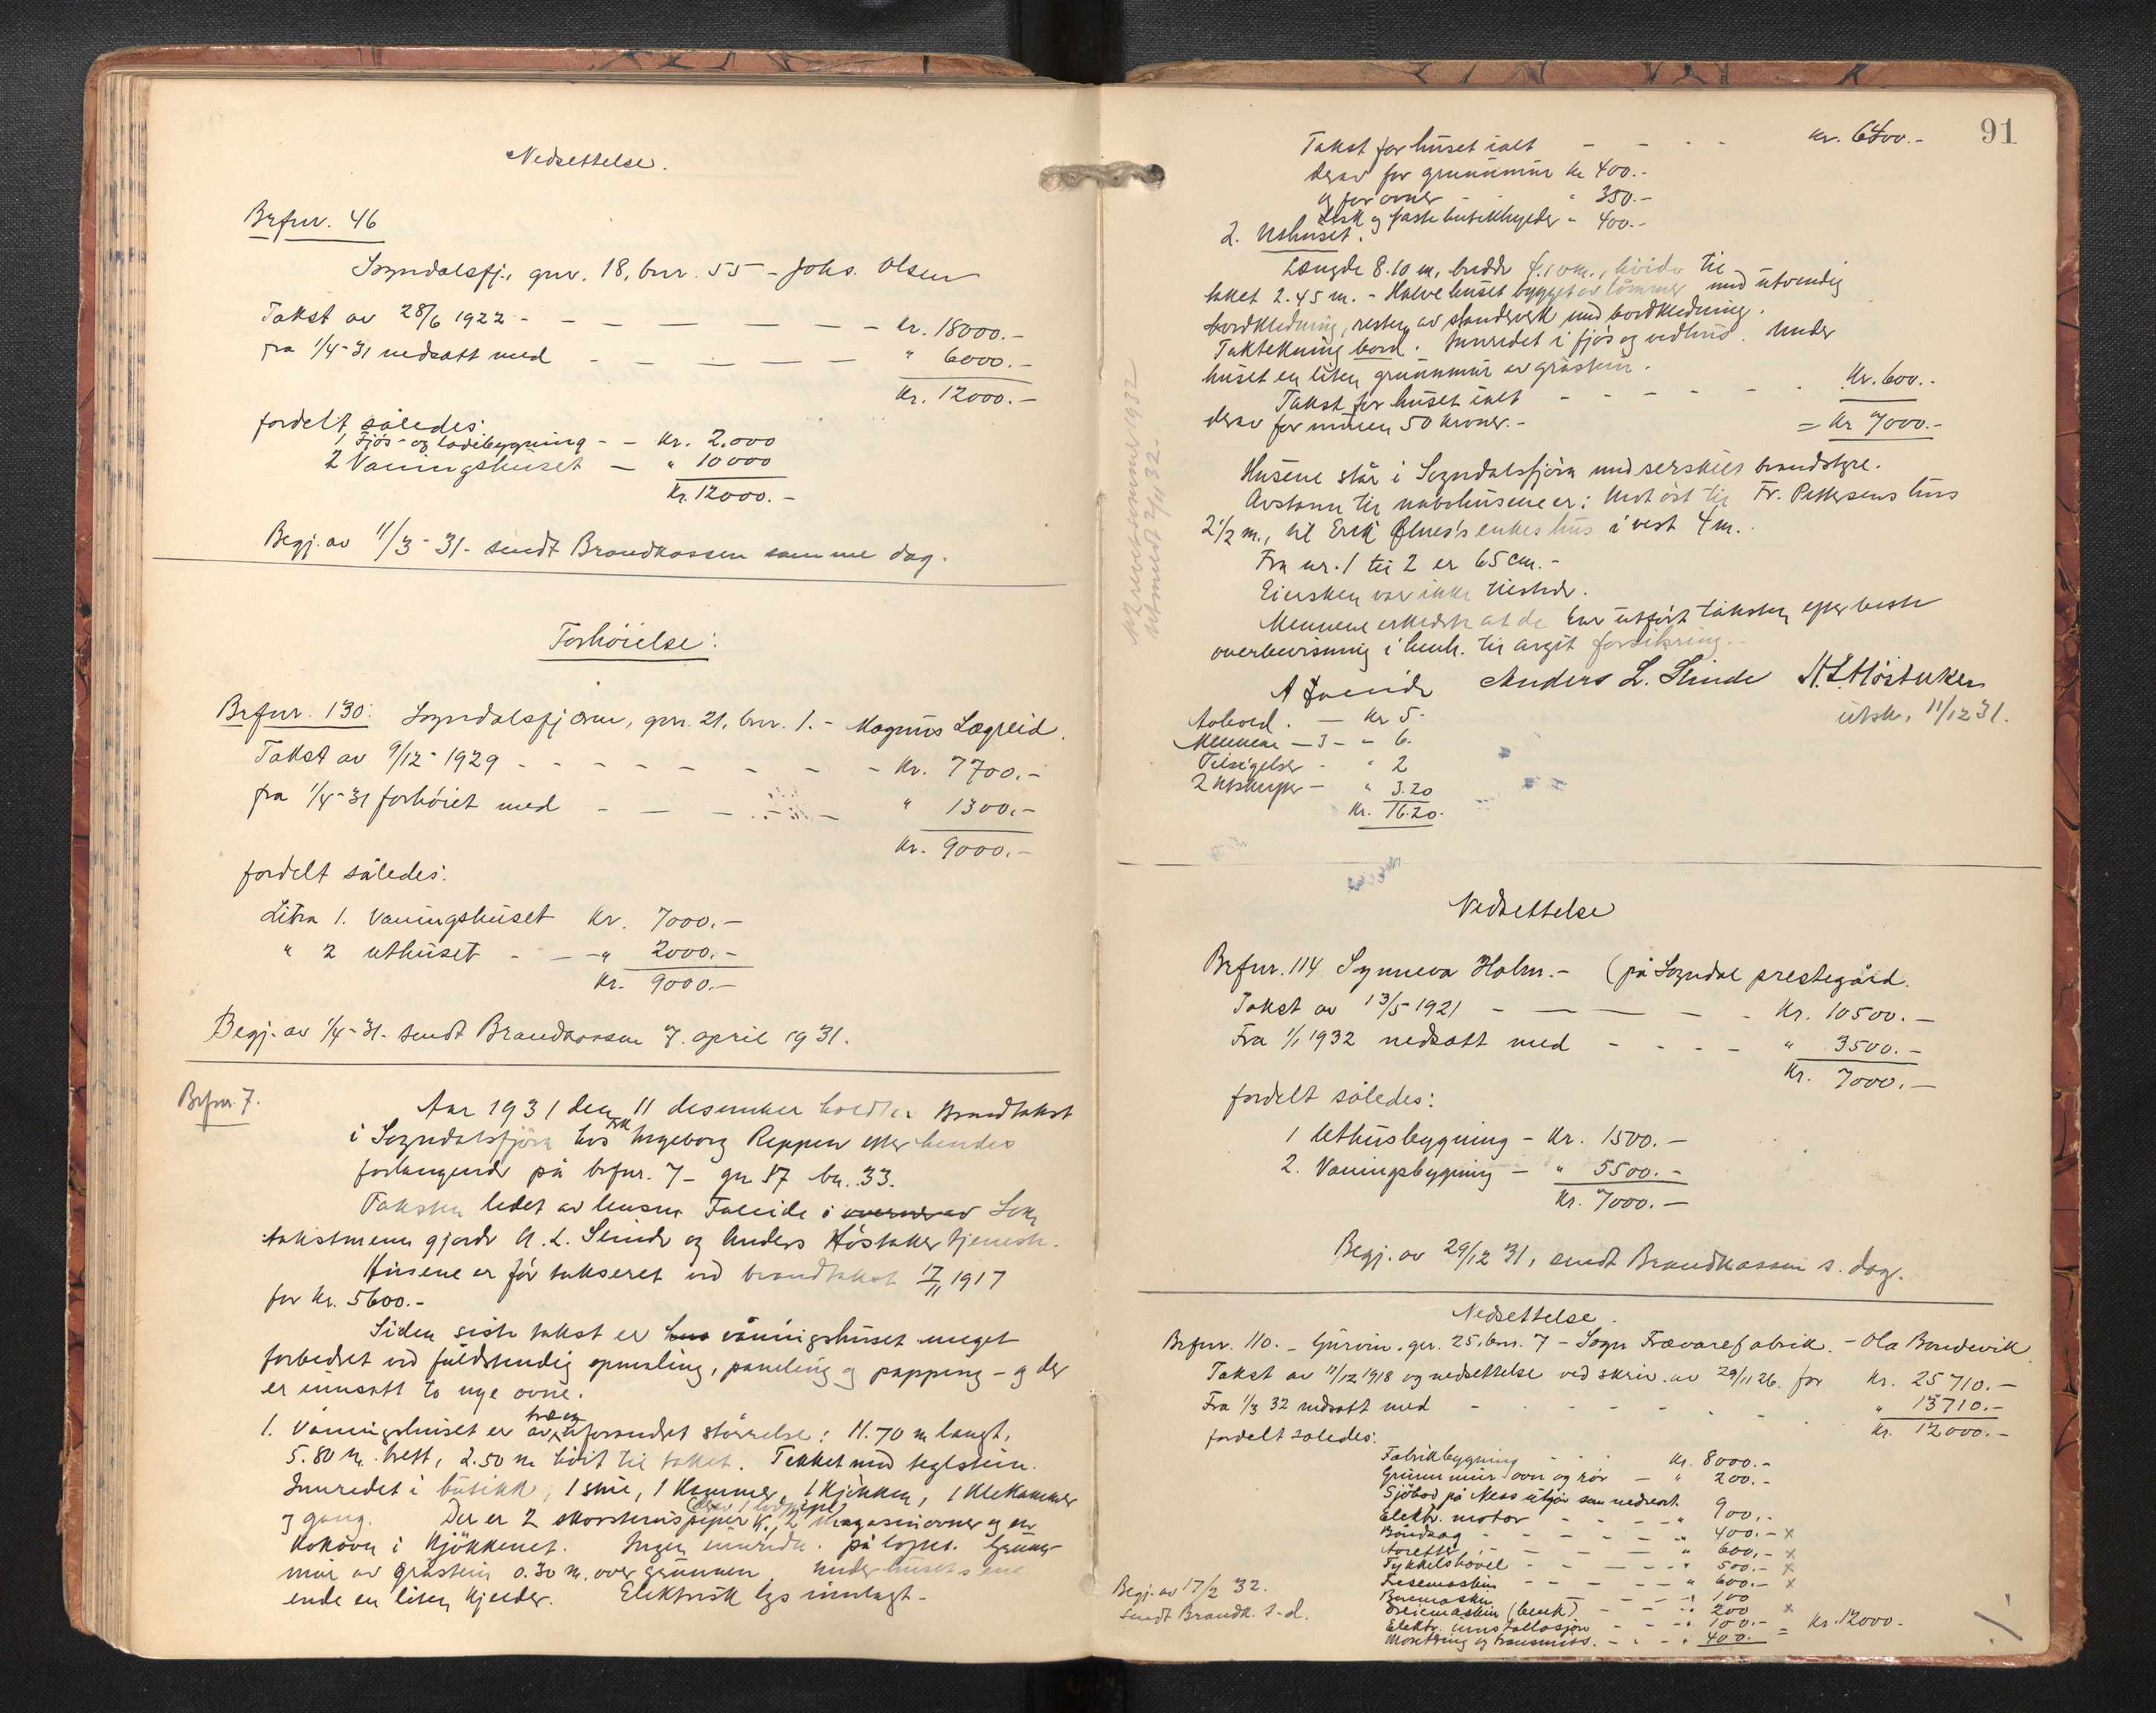 Nedsettelse.
Brfnr. 46
Sogndalsfj., gnr. 18, bnr. 55 - Johs. Olsen
Takst av 28/6 1922 - - - - - - - kr. 18000.-
fra 1/4-31 nedsatt med - - - - - " 6000.-
Kr. 12000.-
fordelt således:
1 Fjøs- og ladebygning - - Kr. 2.000
2 Våningshuset - " 10000
Kr. 12000.-
Begj. av 11/3-31. sendt Brandkassen samme dag.
Forhöielse:
Brfnr. 130: Sogndalsfjøra, gnr. 21, bnr. 1. - Magnus Lægreid.
Takst av 9/12-1929 - - - - - - - - Kr. 7700.-
fra 1/4-31 forhöiet med - - - - " 1300.-
Kr. 9000.-
fordelt således:
Litra 1. Vaningshuset Kr. 7000.-
" 2 uthuset - - - " 2000.-
Kr. 9000.-
Begj. av 1/4-31. sendt Brandkassen 7. april 1931.
Brfnr. 7.
Aar 1931 den 11 desember holdtes Brandtakst
i Sogndalsfjöra hos Frk Ingeborg Reppen efter hendes
forlangende på brfnr. 7 - gn 17 bn. 33.
Taksten ledet av lensm. Faleide i overvær av Som
takstmenn gjorde A. L. Slinde og Anders Höstaker tjeneste.
Husene er för taksert ved brandtakst 17/11 1917
for Kr. 5600.-
Siden siste takst er hus våningshuset meget
forbedret ved fuldstendig opmaling, paneling og papping - og der
er innsatt to nye ovne.
1. Våningshuset er av træ og uforandret störrelse: 11.70 m langt,
5.80 m. brett, 2.50 m höit til taket. Tekket med teglstein.
Innredet i butikk, 1 stue, 1 Kammer, 1 Kjökken, 1 Klekammer
og gang. Der er 2 skorsteinspiper (derav 1 lodpipe), 2 magasinovner og en
Kokovn i Kjökkenet. Ingen innredn. på loftet. Grunn-
mur av gråstein 0.30 m. over grunnen. Under husets ene
ende en liten kjelder. Elektrisk lys innlagt.-
91
Takst for huset ialt - - - - kr. 6400.-
derav for grunnmur kr 400.-
og for ovner - - " 350.-
disk og faste butikkhylder " 400.-
2. Uthuset.
Længde 8.10 m, bredde 4.10 m., höide til
taket 2.45 m. - Halve huset bygget av tömmer med utvendig
bordkledning, resten av standverk med bordkledning.
Taktekning bord. Innredet i fjös og vedhus. Under
huset en liten grunnmur av gråstein.
Takst for huset ialt - - - - - Kr. 600.-
derav for muren 50 kroner.- = Kr 7000.-
Husene står i Sogndalsfjöra med serskilt brandstyre.
Avstann til nabohusene er: Mot öst til Fr. Pettersens hus
2 1/2 m., til Erik Ølnes's enkes hus i vest 4 m.
Fra nr. 1 til 2 er 65 cm.-
Eiersken var ikke tilstede.
Mennene erklærte at de har utfört taksten efter beste
overbevisning i henh. til avgit forsikring.
A Faleide Anders L. Slinde A. L. Höstaker
utsk. 11/12 31.
Avhold. - Kr 5.-
Mennene - 3 - " 6.
Tilsigelser - " 2
2 utskrifter - " 3.20
Kr. 16.20.
Nr 2 revet sommer 1932
Utmeldt 2/11 32.
Nedsettelse
Brfnr. 114 Synneva Holm.- (på Sogndal prestegård.
Takst av 13/5 1921 - - - - - Kr. 10500.-
Fra 1/1 1932 nedsatt med - - - - " 3500.-
Kr. 7000.-
fordelt således:
1 Uthusbygning - Kr. 1500.-
2. Vaningsbygning - " 5500.-
Kr. 7000.-
Begj. av 29/12 31, sendt Brandkassen s. dag.
Nedsettelse.
Brfnr. 110. - Gurvin. gnr. 25, bnr. 7 - Sogn Trævarefabrik. - Ola Bondevik
Takst av 11/12 1918 og nedsettelse ved skriv. av 29/11 26. for Kr. 25710.-
Fra 1/3 32 nedsatt med - - - - - " 13710.-
fordelt således: Kr. 12000.-
Fabrikbygning - - - Kr. 8000.-
Grunnmur ovn og rör - " 200.-
Sjöbod på Ness utgår som nedrevet.
Elektr. motor - - - " 900.-
Båndsag - - - - - " 400.- x
Avretter - - - - " 600.- x
Tykkelshövel - - - - " 500.- x
Fresemaskin - - - - " 600.- x
Boremaskin - - - - " 100
Dreiemaskin (benk) - - - " 200 x
Elektr. innstallasjon - - - " 100.- = Kr. 12000.-
Montering og transmiss. - - - " 400.-
Begj. av 17/2 32.
sendt Brandk. s.d.